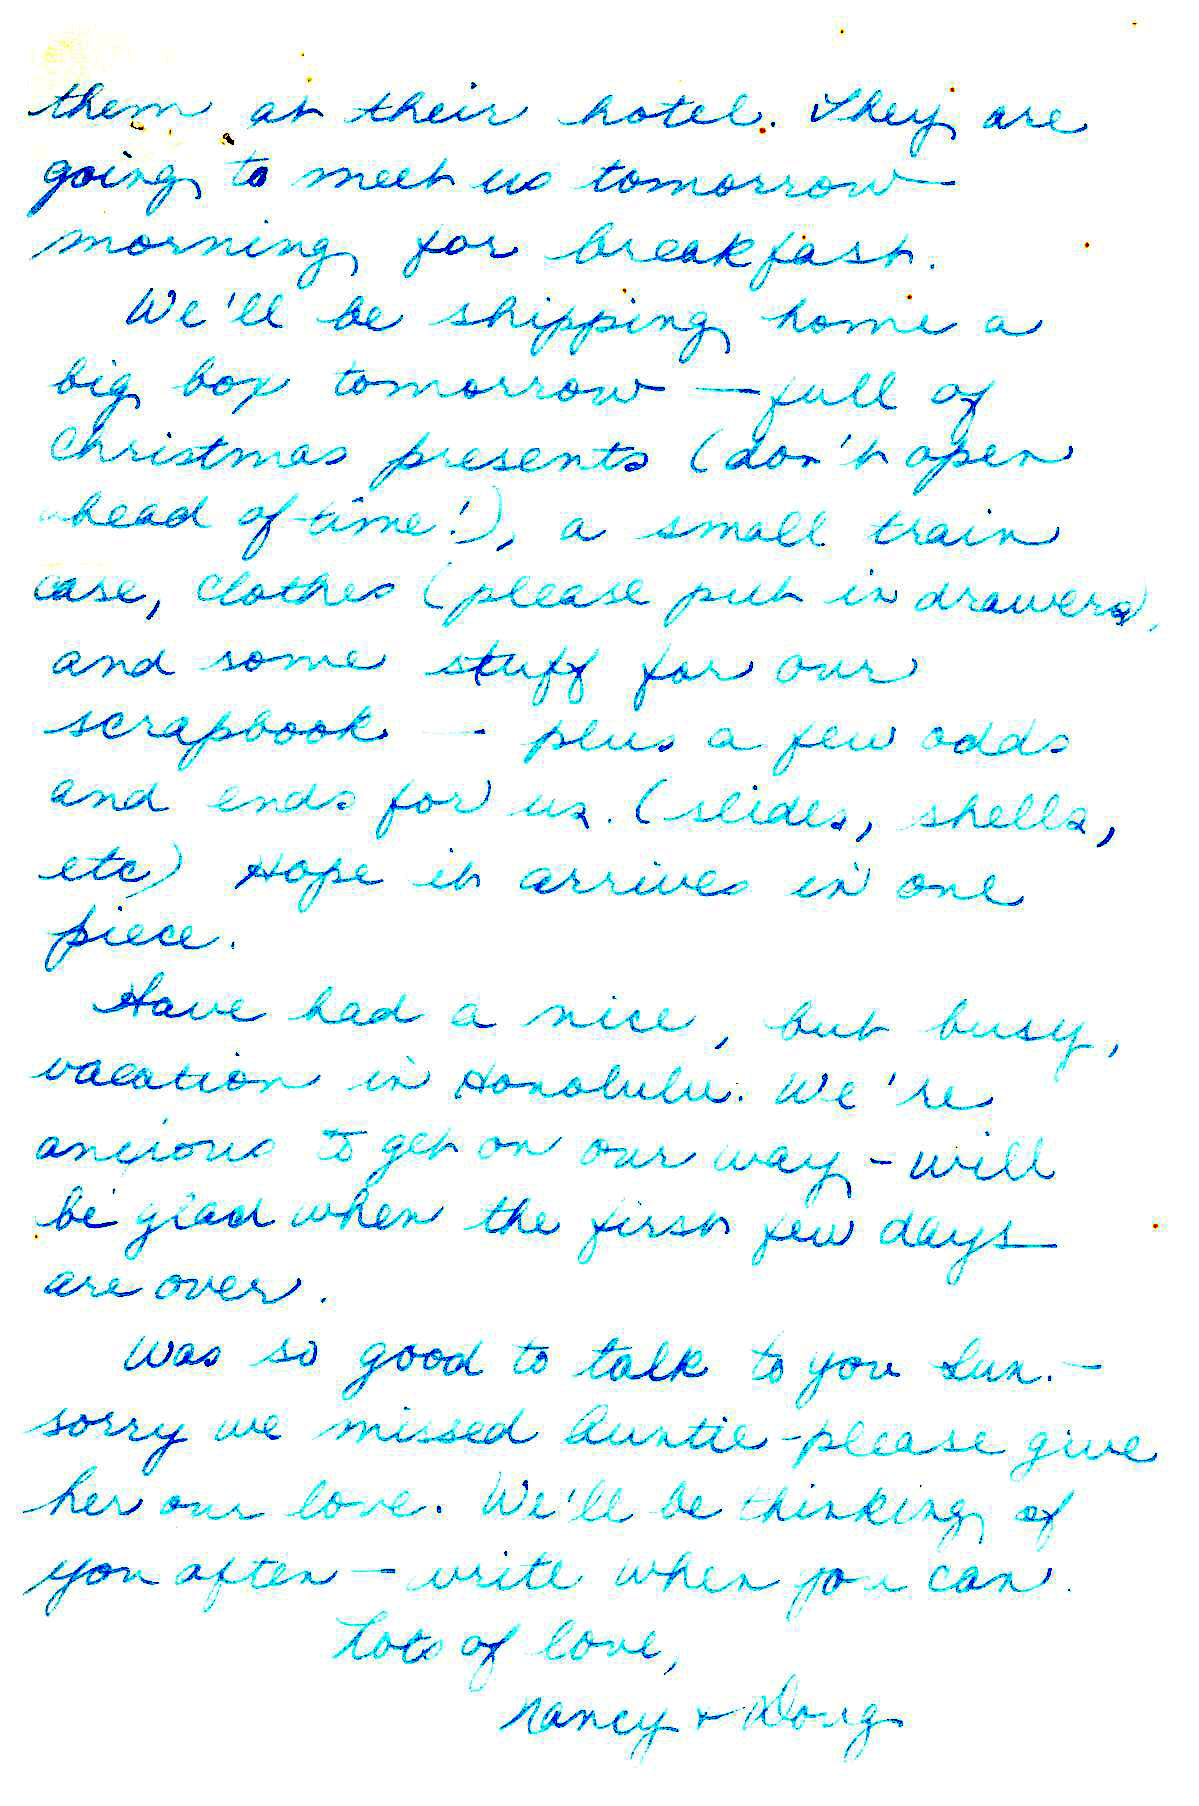 them at their hotel. They are
going to meet us tomorrow
morning for breakfast.
We'll be shipping home a
big box tomorrow — full of
Christmas presents (don't open
ahead of time!), a small train
case, clothes (please put in drawers),
and some stuff for our
scrapbook — plus a few odds
and ends for us. (slides, shells,
etc) Hope it arrives in one
piece.
Have had a nice, but busy,
vacation in Honolulu. We're
anxious to get on our way - will
be glad when the first few days
are over.
Was so good to talk to you Sun. -
sorry we missed Auntie - please give
her our love. We'll be thinking of
you often - write when you can.
Lots of love,
Nancy & Doug